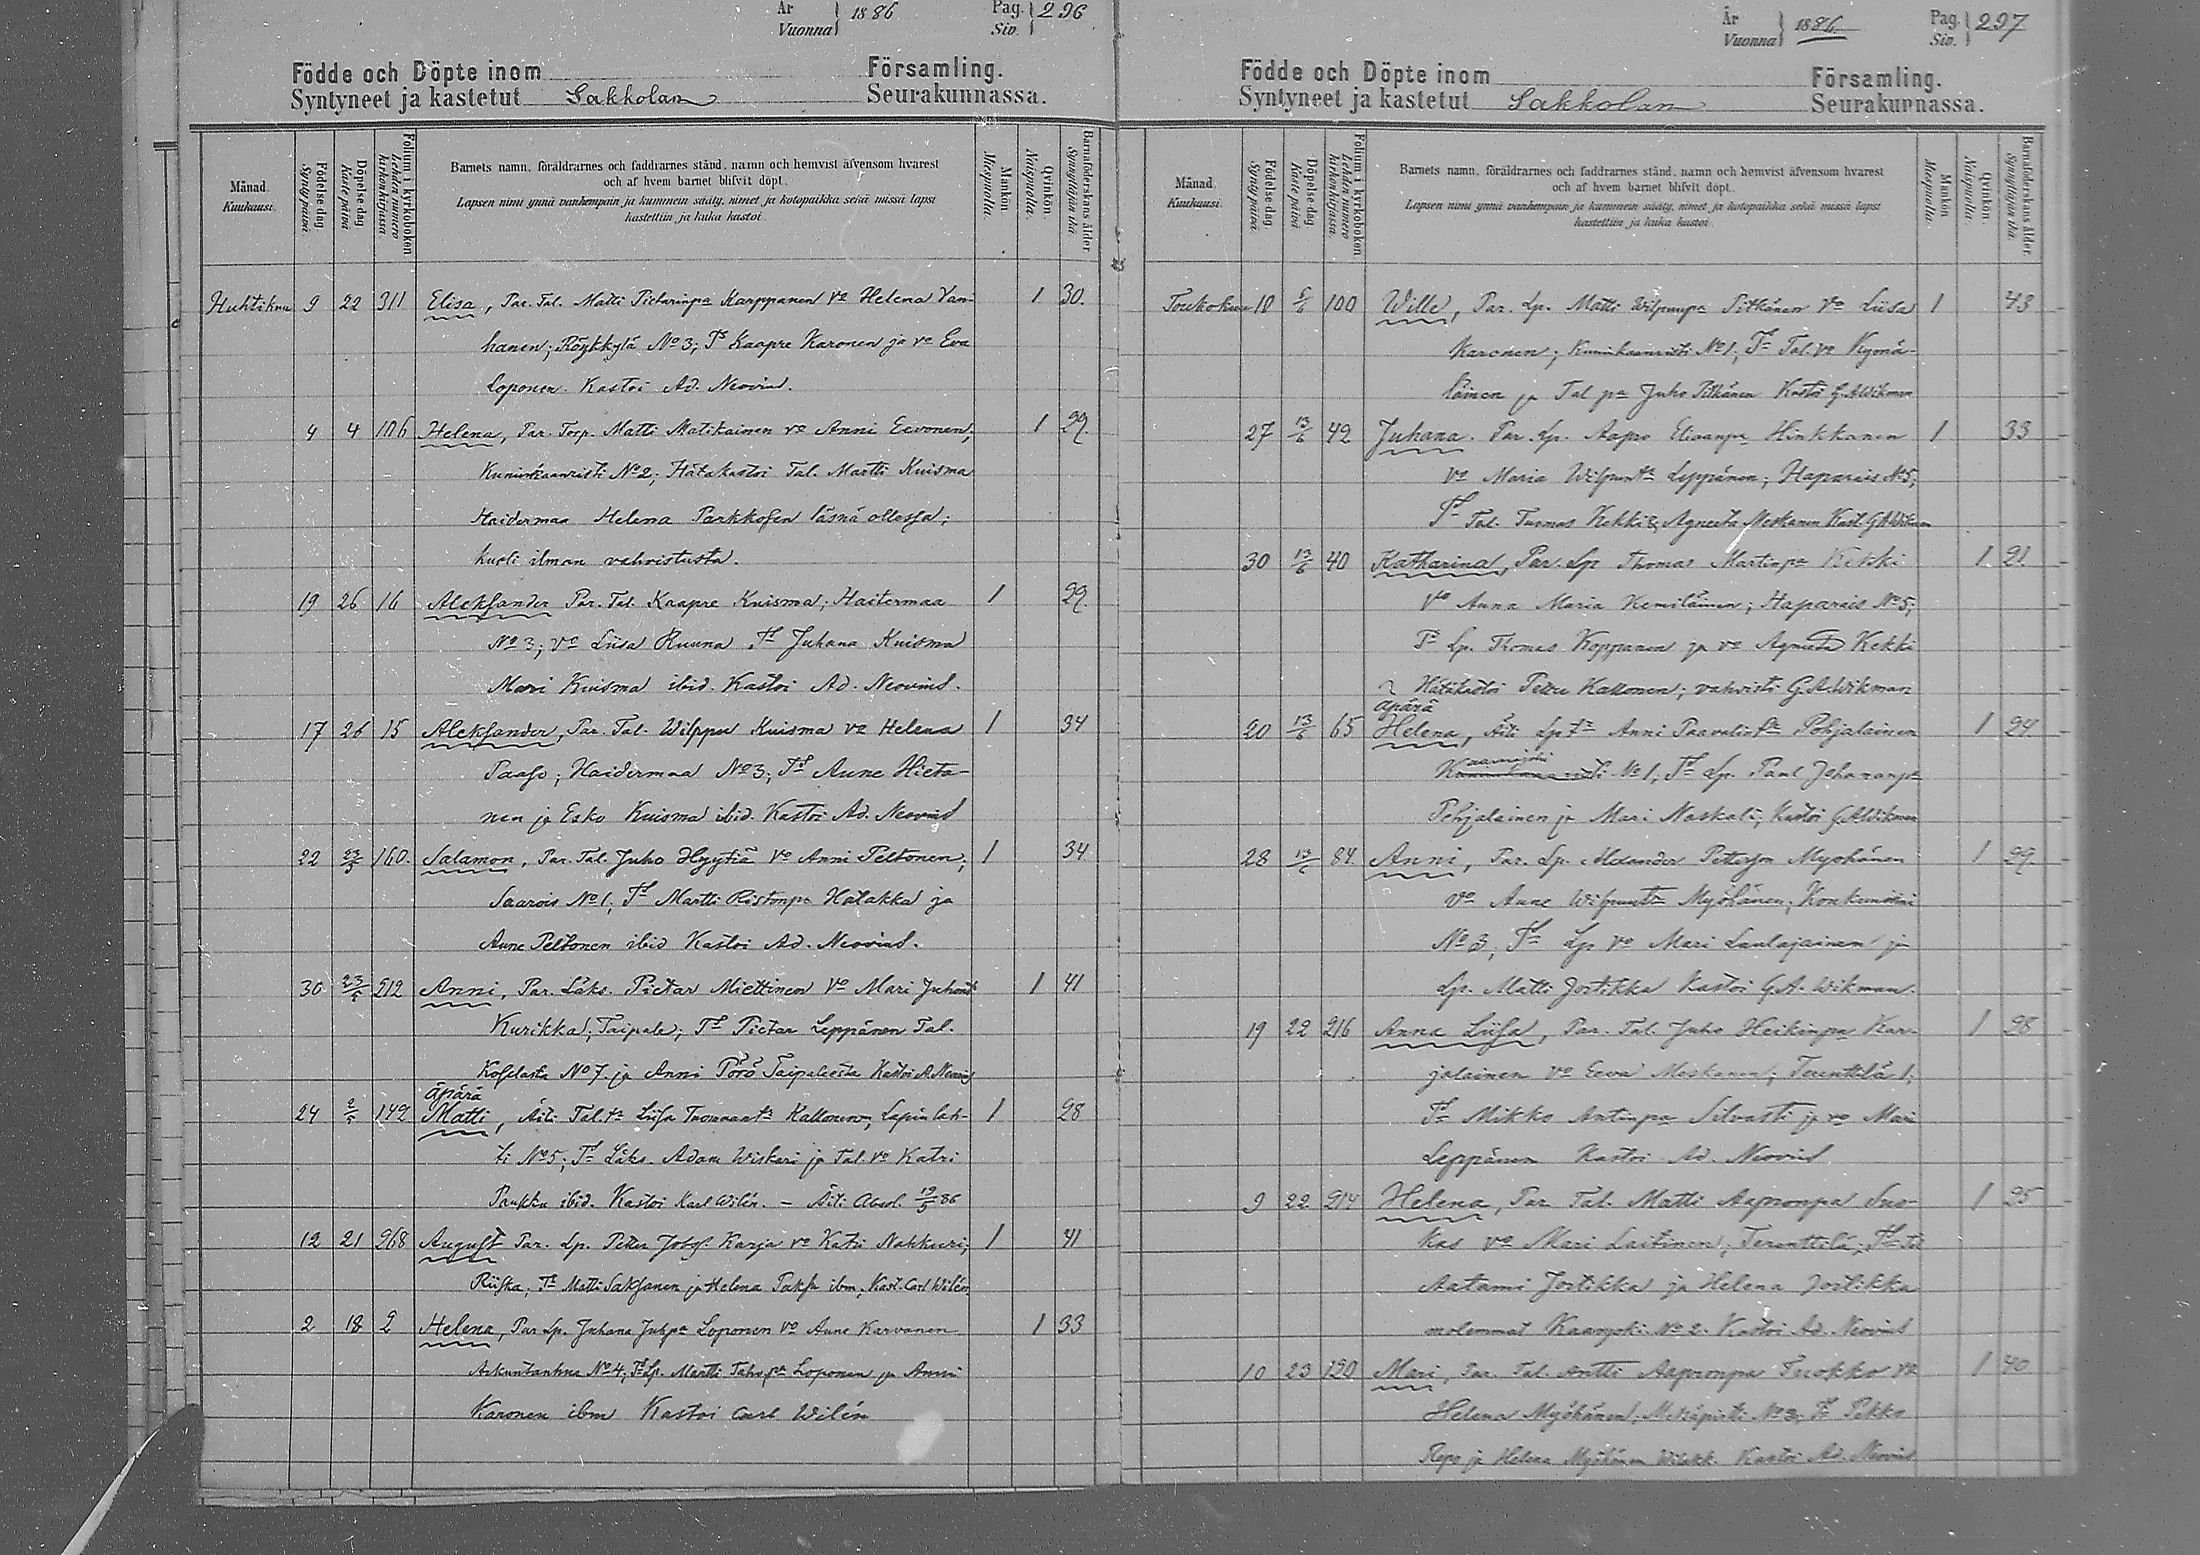 År
Vuonna } 1886 Pag.
Siv. } 296
Födde och Döpte inom Församling.
Syntyneet ja kastetut Sakkolan Seurakunnassa.
Månad.
Kuukausi.
Födelse dag
Syntypäivä
Döpelse dag
Kaste päivä
Folium i kyrkoboken
Lehden numero kirkonkirjassa
Barnets namn, föräldrarnes och faddrarnes stånd, namn och hemvist äfvensom hvarest
och af hvem barnet blifvit döpt.
Lapsen nimi ynnä vanhempain ja kummein sääty, nimet ja kotopaikka sekä missä lapsi
kastettiin ja kuka kastoi.
Mankön
Miespuolia.
Qvinkön.
Naispuolia.
Barnaföderskans ålder.
Synnyttäjän ikä
Huhtikuu 9 22 311 Elisa, Par. Tal. Matti Pietarinpa Karppanen vo Helena Van- 1 30.
hanen; Röykkylä No 3; Ts Kaapre Karonen ja vo Eva
Loponen. Kastoi Ad. Neovius.
4 4 106 Helena, Par. Torp. Matti Matikainen vo Anni Eevonen, 1 29
Kuninkaanristi No 2; Hätäkastoi Tal. Martti Kuisma
Haidermaa Helena Parkkosen läsnä ollessa;
kuoli ilman vahvistusta.
19 26 16 Aleksander Par. Tal. Kaapre Kuisma; Haitermaa 1 29.
No 3; vo Liisa Ruuna, Ts Juhana Kuisma
Mari Kuisma ibid. Kastoi Ad. Neovius.
17 26 15 Aleksander, Par. Tal. Wilppu Kuisma vo Helena 1 34
Paaso; Haidermaa No 3; Ts Aune Hieta-
nen ja Esko Kuisma ibid. Kastoi Ad. Neovius
22 23/5 160. Salamon, Par. Tal. Juho Hyytiä vo Anni Peltonen; 1 34
Saarois No 1, Ts Martti Ristonpa Hatakka ja
Aune Peltonen ibid Kastoi Ad. Neovius.
30 23/5 212 Anni, Par. Läks. Pietar Miettinen vo Mari Juhont 1 41
Kurikka; Taipale; Ts Pietar Leppänen Tal.
Koselasta No 7. ja Anni Pörö Taipaleesta Kastoi A. Neovius
äpärä
24 2/5 142 Matti, Äiti Tal. tr Liisa Tuomaantr Kallonen, Lapinlah- 1 28
ti No 5; Ts Läks. Adam Wiskari ja Tal. vo Katri
Paukku ibid. Kastoi Karl Wilén. – Äiti Absol. 19/5 86
12 21 268 August Par. Lp. Petter Karja vo Katri Nahkuri; 1 41
Riiska; Ts Matti Saksanen ja Helena Paksu ibm; Kast. Carl Wilén
2 18 2 Helena, Par Lp. Juhana Juhpa Loponen vo Aune Karvanen 1 33
No 4; Ts Lp. Martti Loponen ja Anni
Karonen ibm Kastoi Carl Wilén
År
Vuonna } 1886. Pag.
Siv. } 297
Födde och Döpte inom Församling.
Syntyneet ja kastetut Sakkolan Seurakunnassa.
Månad.
Kuukausi.
Födelse dag
Syntypäivä
Döpelse dag
Kaste päivä
Folium i kyrkoboken
Lehden numero kirkonkirjassa
Barnets namn, föräldrarnes och faddrarnes stånd, namn och hemvist äfvensom hvarest
och af hvem barnet blifvit döpt.
Lapsen nimi ynnä vanhempain ja kummein sääty, nimet ja kotopaikka sekä missä lapsi
kastettiin ja kuka kastoi.
Mankön
Miespuolia.
Qvinkön.
Naispuolia.
Barnaföderskans ålder.
Synnyttäjän ikä
Toukokuu 10 6/6 100 Wille, Par. Lp. Matti Wilpunpa Pitkänen vo Liisa 1 43
Karonen; Kuninkaanristi No 1; Ts Tal. vo Kymä-
läinen ja Tal pa Juho Pitkänen Kastoi G.A.Wikman
27 13/6 42 Juhana. Par. Lp. Aapro Eliaanpa Hinkkanen 1 33
vo Maria Wilpuntr Leppänen; Haparais No 5;
Ts Tal. Tuomas Kekki & Agneeta Meskanen Kast. G A Wikman
30 13/6 40 Katharina, Par. Lp Thomas Martinpa Kekki 1 21
vo Anna Maria Kemiläinen; Haparais No 5;
Ts Lp. Thomas Koppanen ja vo Agneeta Kekki
Hätäkastoi Petter Kallonen; vahvisti G.A.Wikman
äpärä
20 13/6 65 Helena, Äiti Lp tr Anni Paavalintr Pohjalainen 1 24
No 1; Ts Lp. Paul Johananpa
Pohjalainen ja Mari Naskali; Kastoi G.A.Wikman
28 13/6 84 Anni, Par. Lp. Alexander Petterson Myöhänen 1 29
vo Aune Wilpuntr Myöhänen; Konkunniemi
No 3; Ts Lp vo Mari Laulajainen ja
Lp. Matti Jortikka Kastoi G.A. Wikman.
19 22 216 Anna Liisa, Par. Tal. Juho Heikinpa Kar- 1 28
jalainen vo Eeva Meskanen; Terenttilä 1;
Ts Mikko Antinpa Silvasti ja vo Mari
Leppänen Kastoi Ad. Neovius
9 22 214 Helena, Par Tal. Matti Aapronpa Suo- 1 25
kas vo Mari Laitinen; Terenttilä; Ts
Aatami Jortikka ja Helena Jortikka
molemmat No 2. Kastoi Ad. Neovius
10 23 120 Mari, Par. Tal. Antti Aapronpa Tuokko vo 1 40
Helena Myöhänen; Metsäpirtti No 3; Ts Pekko
Repo ja Helena Myöhänen Kastoi Ad. Neovius